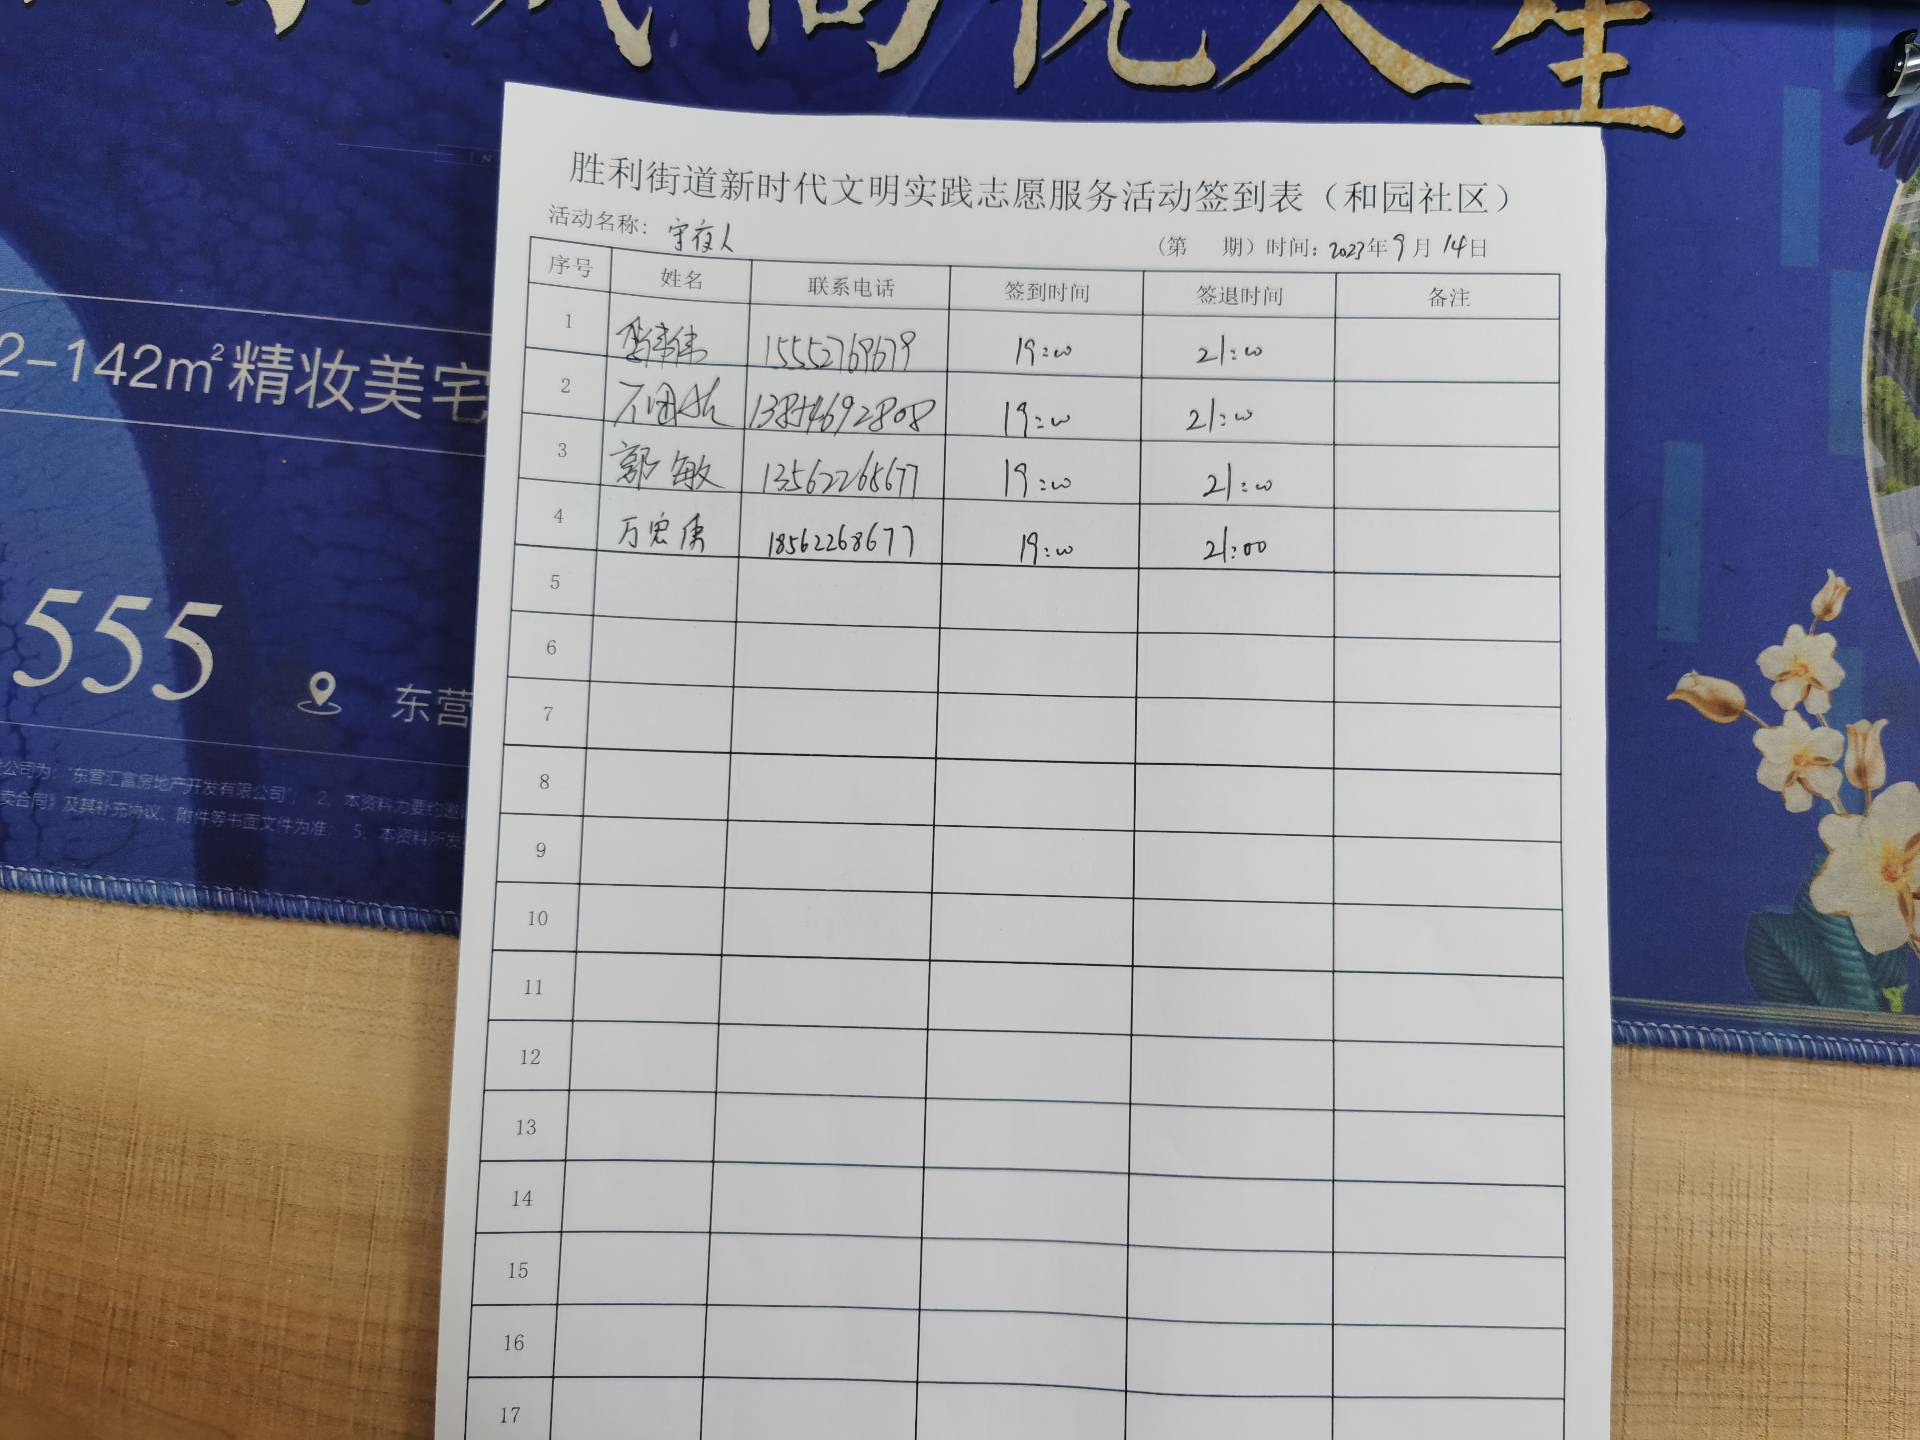 人生
胜利街道新时代文明实践志愿服务活动签到表（和园社区）
活动名称：守夜人
（第 期）时间：2023年9月14日
序号 姓名 联系电话 签到时间 签退时间 备注
1 15552769679 19:00 21:00
2 13854692808 19:00 21:00
3 郭敏 13562268677 19:00 21:00
4 万忠 18562268677 19:00 21:00
5
6
7
8
9
10
11
12
13
14
15
16
17
2-142m²精妆美宅
555
东营
公司为：“东营汇富房地产开发有限公司”； 2、本资料为要约邀
卖合同》及其补充协议、附件等书面文件为准； 5、本资料所发